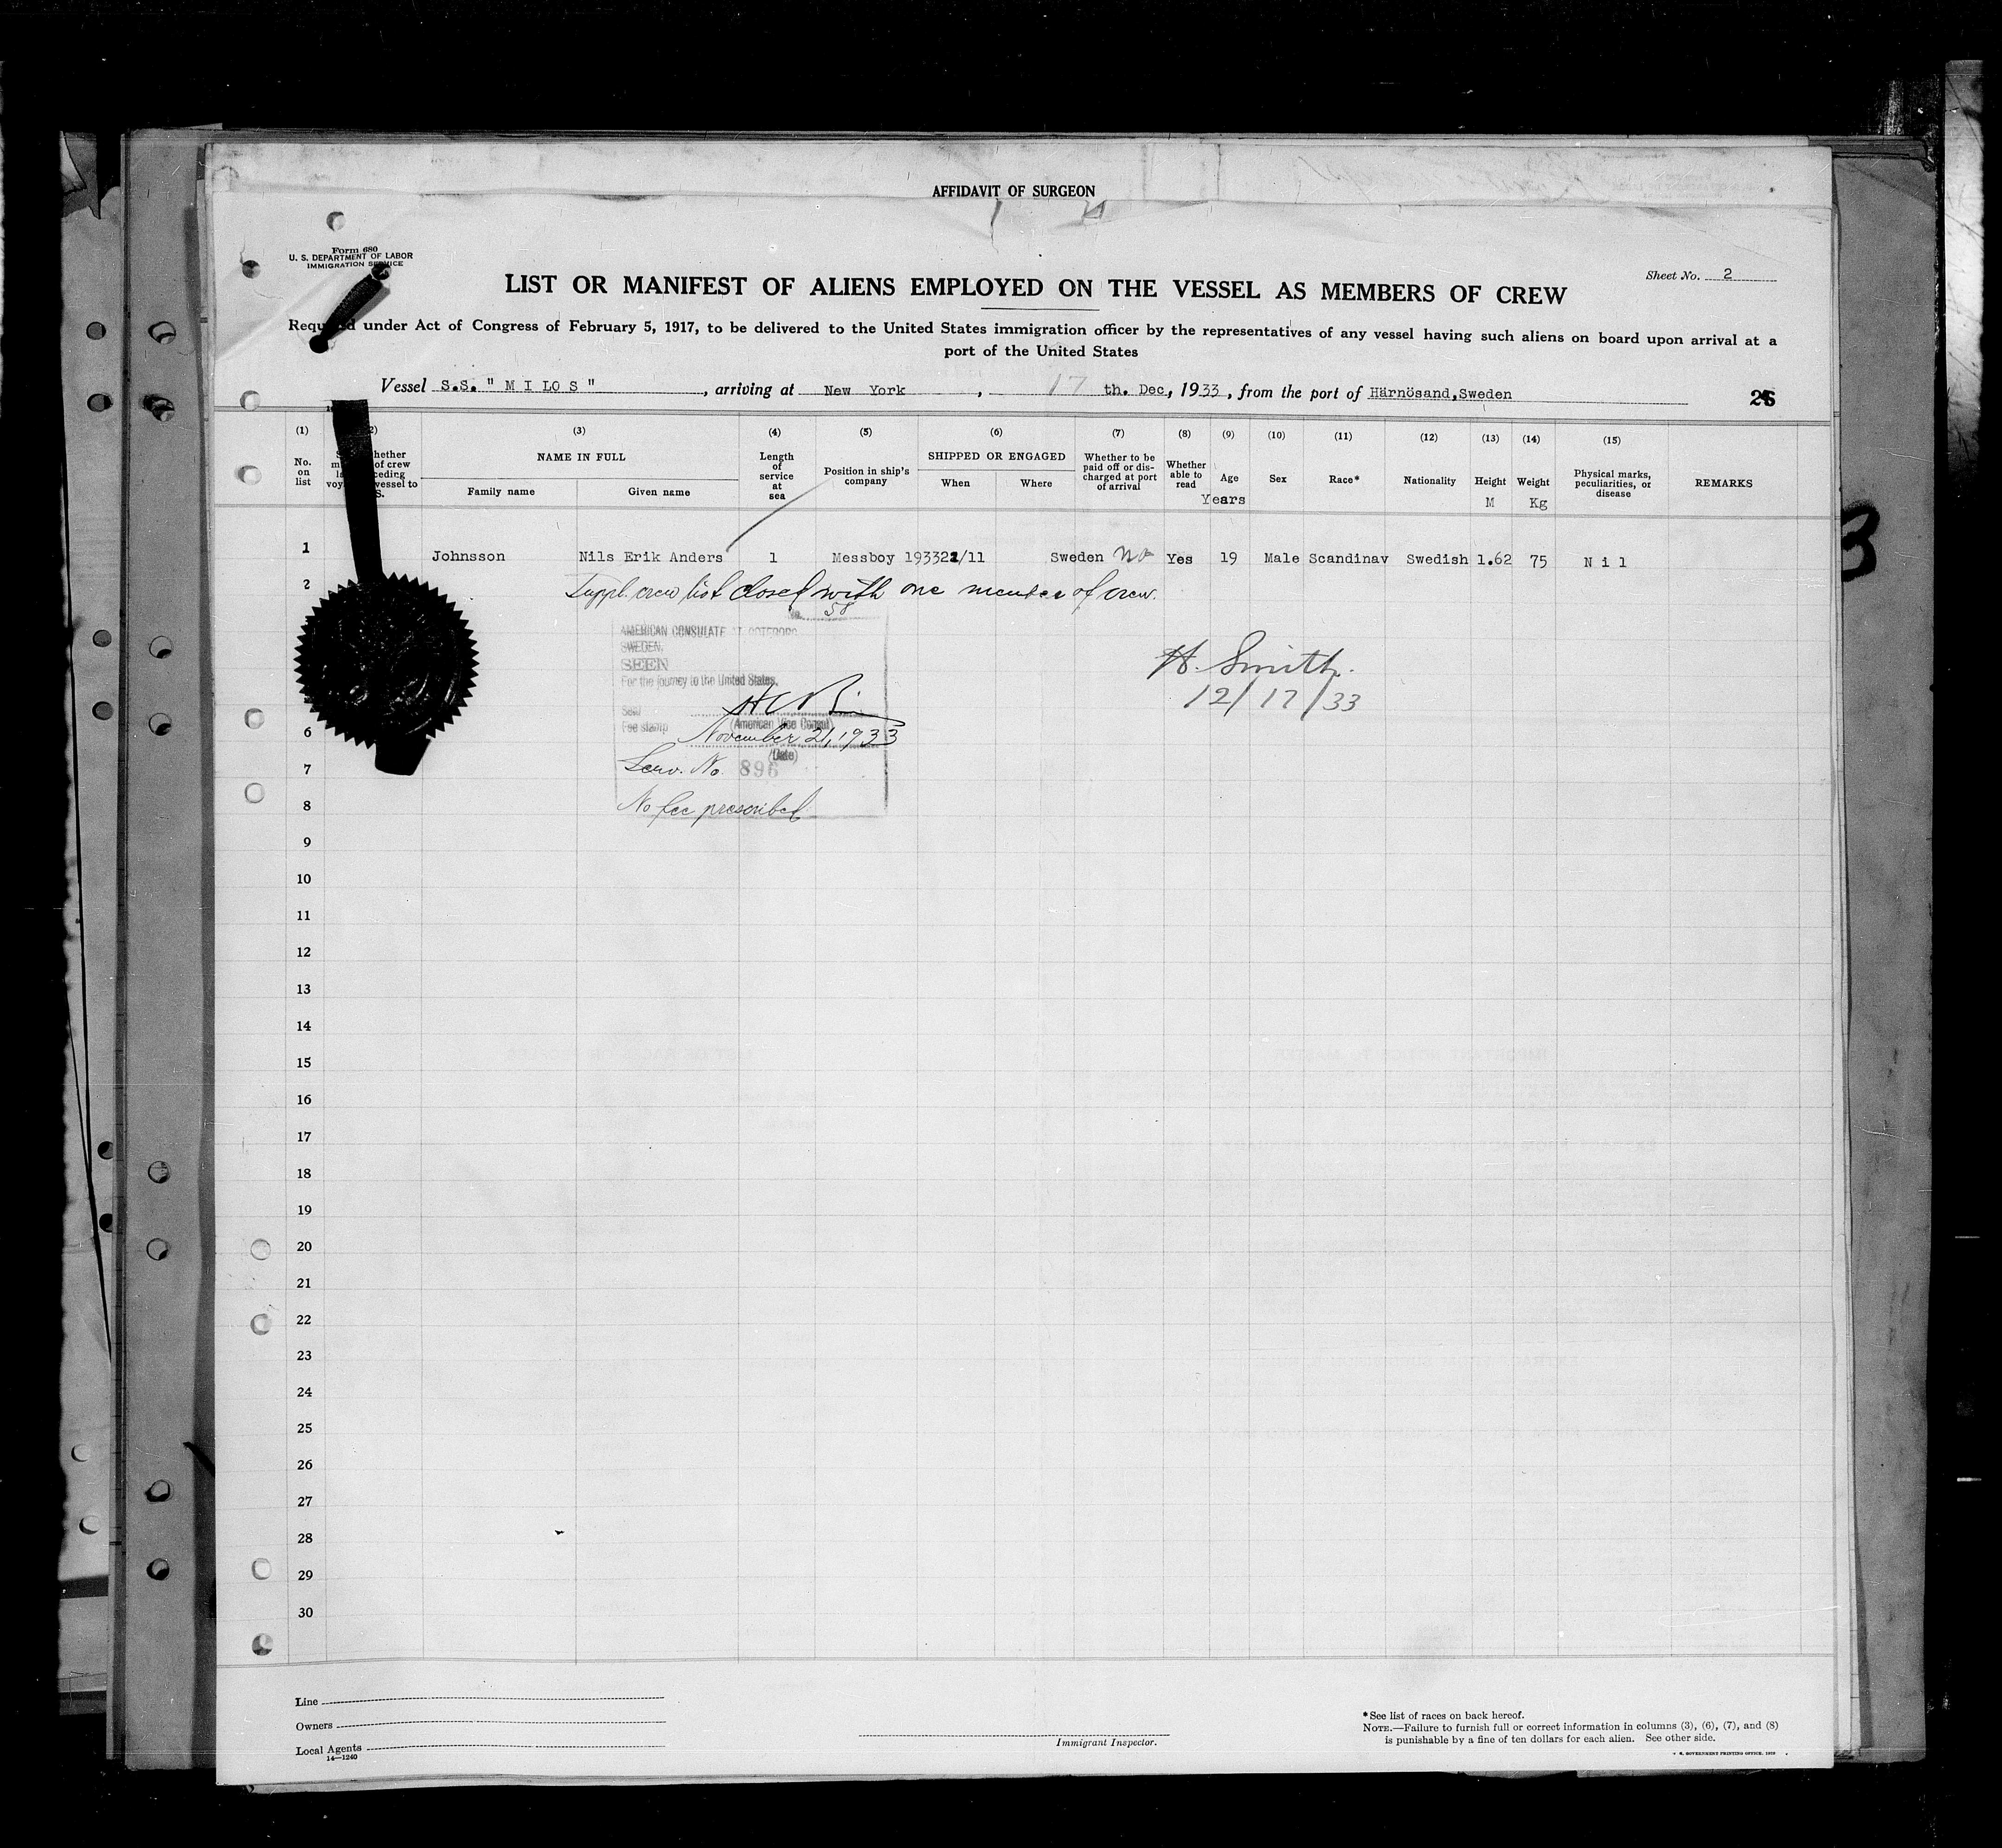 AFFIDAVIT OF SURGEON
Form 680
U. S. DEPARTMENT OF LABOR
IMMIGRATION SERVICE
Sheet No. 2
LIST OR MANIFEST OF ALIENS EMPLOYED ON THE VESSEL AS MEMBERS OF CREW
Required under Act of Congress of February 5, 1917, to be delivered to the United States immigration officer by the representatives of any vessel having such aliens on board upon arrival at a
port of the United States
Vessel S.S. " M I LO S ", arriving at New York, 17 th. Dec, 1933, from the port of Härnösand,Sweden
(1) (2) (3) (4) (5) (6) (7) (8) (9) (10) (11) (12) (13) (14) (15)
No. on list
whether of crew vessel to
NAME IN FULL
Family name
Given name
Length of service at sea
Position in ship's company
SHIPPED OR ENGAGED
When
Where
Whether to be paid off or discharged at port of arrival
Whether able to read
Age
Years
Sex
Race*
Nationality
Height
M
Weight
Kg
Physical marks, peculiarities, or disease
REMARKS
1 Johnsson Nils Erik Anders 1 Messboy 1933 21/11 Sweden No Yes 19 Male Scandinav Swedish 1.62 75 N i l
2 Suppl. crew list closed with one member of crew.
No. 58
AMERICAN CONSULATE AT GOTEBORG
SWEDEN.
SEEN
For the journey to the United States.
Seal
(American Vice Consul)
Fee stamp
November 21, 1933
(Date)
Serv. No. 896
No fee prescribed
H. Smith.
12/17/33
6
7
8
9
10
11
12
13
14
15
16
17
18
19
20
21
22
23
24
25
26
27
28
29
30
3
Line
Owners
Local Agents
14—1240
Immigrant Inspector.
*See list of races on back hereof.
NOTE.—Failure to furnish full or correct information in columns (3), (6), (7), and (8)
is punishable by a fine of ten dollars for each alien. See other side.
U. S. GOVERNMENT PRINTING OFFICE. 1929